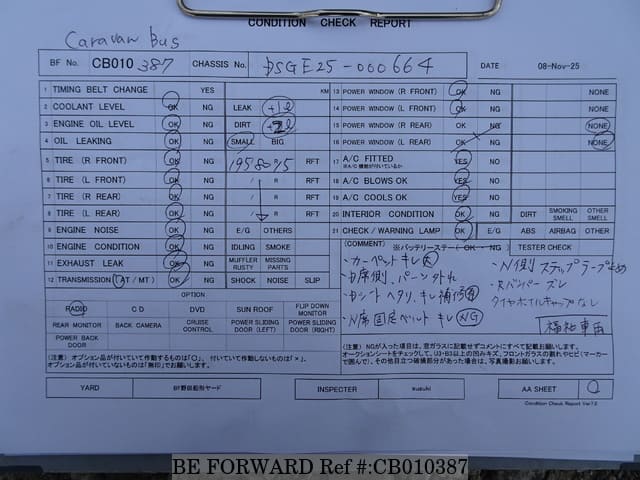 CONDITION CHECK REPORT
Caravan Bus
BF No. CB010 387 CHASSIS No. DSGE25-000664 DATE 08-Nov-25
1 TIMING BELT CHANGE YES KM
2 COOLANT LEVEL OK NG LEAK +1ℓ
3 ENGINE OIL LEVEL OK NG DIRT +2ℓ
4 OIL LEAKING OK NG SMALL BIG
5 TIRE (R FRONT) OK NG 195 80 15 RFT
6 TIRE (L FRONT) OK NG / R RFT
7 TIRE (R REAR) OK NG / R RFT
8 TIRE (L REAR) OK NG / R RFT
9 ENGINE NOISE OK NG E/G OTHERS
10 ENGINE CONDITION OK NG IDLING SMOKE
11 EXHAUST LEAK OK NG MUFFLER RUSTY MISSING PARTS
12 TRANSMISSION (AT/MT) OK NG SHOCK NOISE SLIP
OPTION
RADIO CD DVD SUN ROOF FLIP DOWN MONITOR
REAR MONITOR BACK CAMERA CRUISE CONTROL POWER SLIDING DOOR (LEFT) POWER SLIDING DOOR (RIGHT)
POWER BACK DOOR
(注意) オプション品が付いていて作動するものは「○」、付いていて作動しないものは「×」、
オプション品が付いていないものは「無印」でお願いします。
13 POWER WINDOW (R FRONT) OK NG NONE
14 POWER WINDOW (L FRONT) OK NG NONE
15 POWER WINDOW (R REAR) OK NG NONE
16 POWER WINDOW (L REAR) OK NG NONE
17 A/C FITTED YES NG
※A/C 機能が付いているか
18 A/C BLOWS OK YES NG
19 A/C COOLS OK YES NG
20 INTERIOR CONDITION OK NG DIRT SMOKING SMELL OTHER SMELL
21 CHECK/WARNING LAMP OK E/G ABS AIRBAG OTHER
(COMMENT) ※バッテリーステー( OK ・ NG ) TESTER CHECK
・カーペットキレ大
・N側 ステップラープ止め
・D席側、パーツ外れ
・Rバンパーズレ
・Dシートヘタリ、キレ補修有
タイヤホイルキャップなし
・N席固定ベルトキレNG
福祉車両
(注意) NGが入った項目は、窓ガラスに記載せずコメントにすべて記載お願いします。
オークションシートをチェックして、U3・B3以上の凹みキズ、フロントガラスの割れやヒビ(マーカーで囲んで)、その他目立つ破損部分があった場合は、写真撮影お願いします。
YARD BF野田船形ヤード INSPECTOR suzuki AA SHEET
Condition Check Report Ver7.0
BE FORWARD Ref #:CB010387